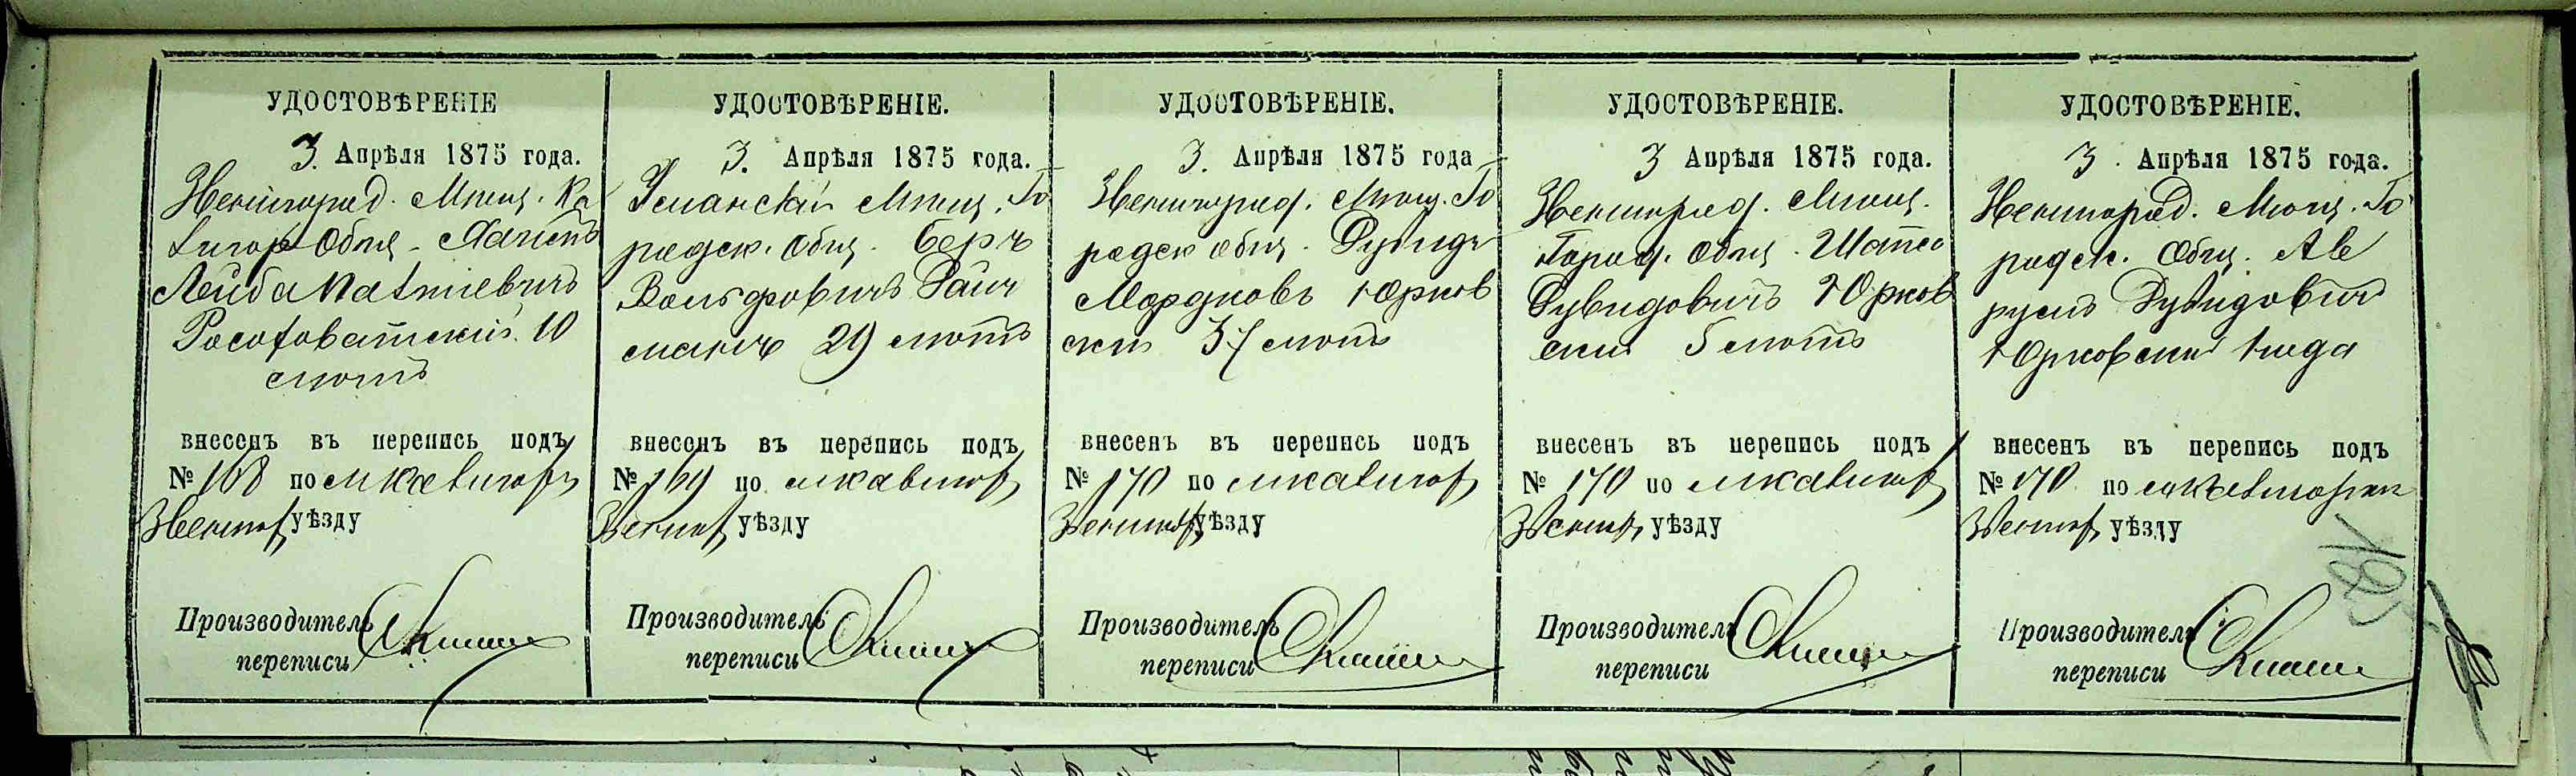 УДОСТОВѢРЕНІЕ
3. Апрѣля 1875 года.
Звенигород. Мѣщ. Ка
лигор Общ.
Лейба
Росоховатскій. 10
лѣтъ
внесенъ въ перепись подъ
№ 168 по м Калигор
Звениг уѣзду
Производитель
переписи
УДОСТОВѢРЕНІЕ.
3. Апрѣля 1875 года.
Уманскій Мѣщ. Го
родск. Общ. Беръ
Вольфовичъ Райч
манъ 29 лѣтъ
внесенъ въ перепись подъ
№ 169 по м Калигор
Звениг уѣзду
Производитель
переписи
УДОСТОВѢРЕНІЕ.
3. Апрѣля 1875 года
Звенигород. Мѣщ. Го
родск общ. Дувидъ
Мордковъ Юрков
скій 37 лѣтъ
внесенъ въ перепись подъ
№ 170 по м Калигор
Звениг уѣзду
Производитель
переписи
УДОСТОВѢРЕНІЕ.
3 Апрѣля 1875 года.
Звенигород. Мѣщ.
Город. Общ.
Дувидовичъ Юрков
скій 5 лѣтъ
внесенъ въ перепись подъ
№ 170 по м Калигор
Звениг уѣзду
Производитель
переписи
УДОСТОВѢРЕНІЕ.
3. Апрѣля 1875 года.
Звенигород. Мѣщ. Го
родск. Общ. Ав
румъ Дувидовичъ
Юрковскій 1 года
внесенъ въ перепись подъ
№ 170 по м Калигор
Звениг уѣзду
Производитель
переписи